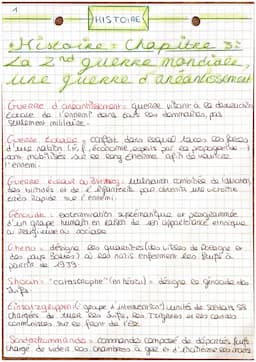 1
HISTOIRE
Histoire : Chapitre 3:
La 2nd guerre mondiale,
une guerre d'anéantissement
Guerre d'anéantissement: guerre visant à la destruction
totale de l'ennemi dans tous les domaines, pas
seulement militaire.
Guerre totale : conflit dans lequel toutes les forces
d'une nation
sont mobilisées sur le long terme afin de vaincre
l'ennemi.
Guerre éclair
des blindés et de l'infanterie pour obtenir une victoire
très rapide sur l'ennemi.
Génocide : extermination systématique et programmée
d'un groupe humain en raison de son appartenance ethnique
religieuse ou sociale.
Ghetto : désigne les quartiers des villes de Pologne et
des pays Baltes) où les nazis enferment les Juifs à
partir de 1939.
Shoah : "catastrophe" (en hébreu) = désigne le génocide des
Juifs.
Einsatzgruppen (" groupe d'intervention") unités de soldats SS
chargées de tuer les Juifs, les Tziganes et les cadres
communistes sur le front de l'Est.
Sonderkommando = commando composé de déportés Juifs
chargé de vider les chambres à gaz et